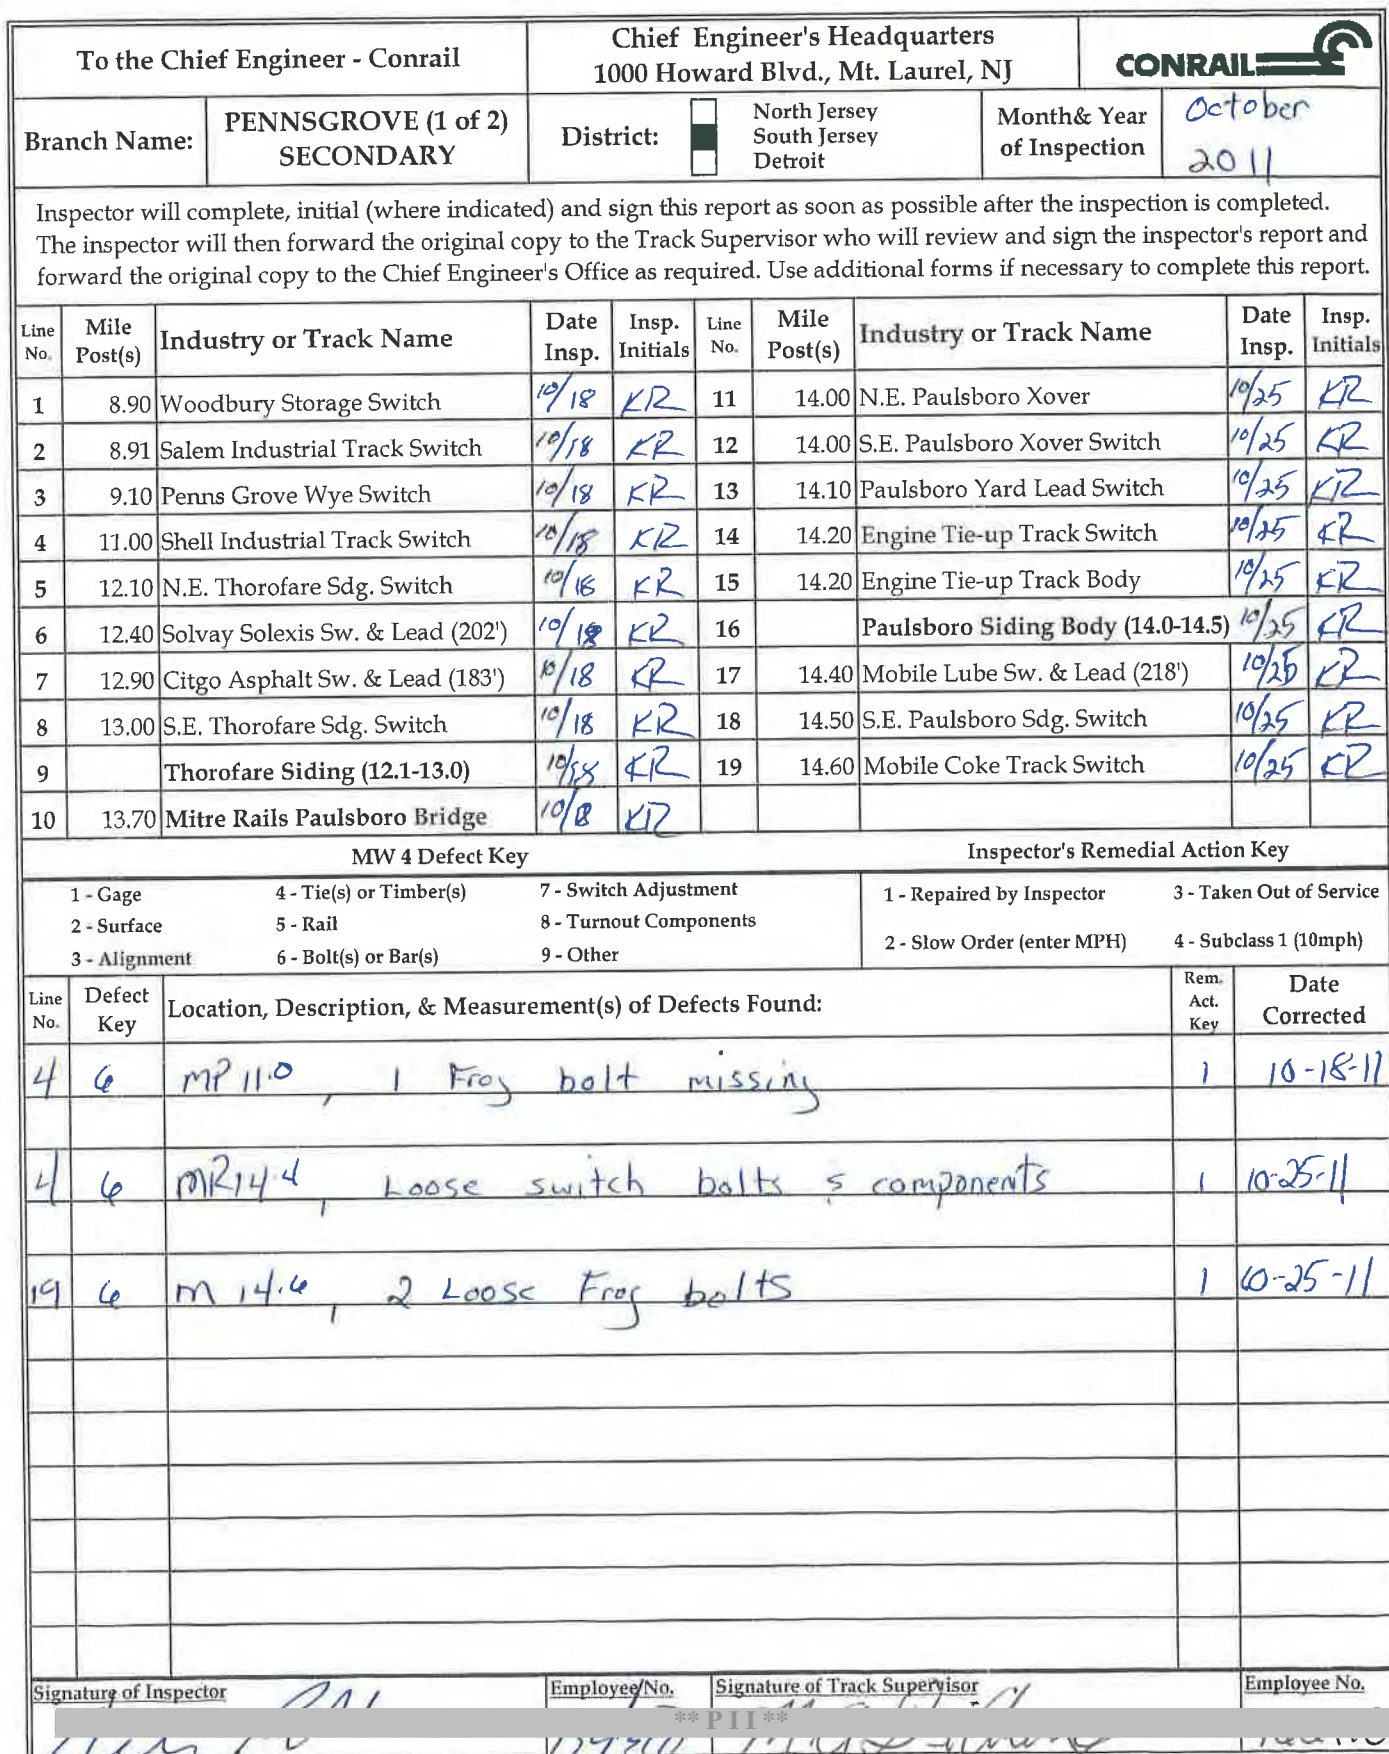 To the Chief Engineer - Conrail
Chief Engineer's Headquarters
1000 Howard Blvd., Mt. Laurel, NJ
CONRAIL
Branch Name:
PENNSGROVE (1 of 2)
SECONDARY
District:
North Jersey
South Jersey
Detroit
Month& Year
of Inspection
October
2011
Inspector will complete, initial (where indicated) and sign this report as soon as possible after the inspection is completed.
The inspector will then forward the original copy to the Track Supervisor who will review and sign the inspector's report and
forward the original copy to the Chief Engineer's Office as required. Use additional forms if necessary to complete this report.
Line No. Mile Post(s) Industry or Track Name Date Insp. Insp. Initials Line No. Mile Post(s) Industry or Track Name Date Insp. Insp. Initials
1 8.90 Woodbury Storage Switch 10/18 KR 11 14.00 N.E. Paulsboro Xover 10/25 KR
2 8.91 Salem Industrial Track Switch 10/18 KR 12 14.00 S.E. Paulsboro Xover Switch 10/25 KR
3 9.10 Penns Grove Wye Switch 10/18 KR 13 14.10 Paulsboro Yard Lead Switch 10/25 KR
4 11.00 Shell Industrial Track Switch 10/18 KR 14 14.20 Engine Tie-up Track Switch 10/25 KR
5 12.10 N.E. Thorofare Sdg. Switch 10/18 KR 15 14.20 Engine Tie-up Track Body 10/25 KR
6 12.40 Solvay Solexis Sw. & Lead (202') 10/18 KR 16 Paulsboro Siding Body (14.0-14.5) 10/25 KR
7 12.90 Citgo Asphalt Sw. & Lead (183') 10/18 KR 17 14.40 Mobile Lube Sw. & Lead (218') 10/25 KR
8 13.00 S.E. Thorofare Sdg. Switch 10/18 KR 18 14.50 S.E. Paulsboro Sdg. Switch 10/25 KR
9 Thorofare Siding (12.1-13.0) 10/18 KR 19 14.60 Mobile Coke Track Switch 10/25 KR
10 13.70 Mitre Rails Paulsboro Bridge 10/18 KR
MW 4 Defect Key
Inspector's Remedial Action Key
1 - Gage 4 - Tie(s) or Timber(s) 7 - Switch Adjustment 1 - Repaired by Inspector 3 - Taken Out of Service
2 - Surface 5 - Rail 8 - Turnout Components
2 - Slow Order (enter MPH) 4 - Subclass 1 (10mph)
3 - Alignment 6 - Bolt(s) or Bar(s) 9 - Other
Line No. Defect Key Location, Description, & Measurement(s) of Defects Found: Rem. Act. Key Date Corrected
4 6 MP 11.0, 1 Frog bolt missing 1 10-18-11
4 6 MP 14.4, Loose switch bolts & components 1 10-25-11
19 6 M 14.6, 2 Loose Frog bolts 1 10-25-11
Signature of Inspector Employee No. Signature of Track Supervisor Employee No.
** P I I **